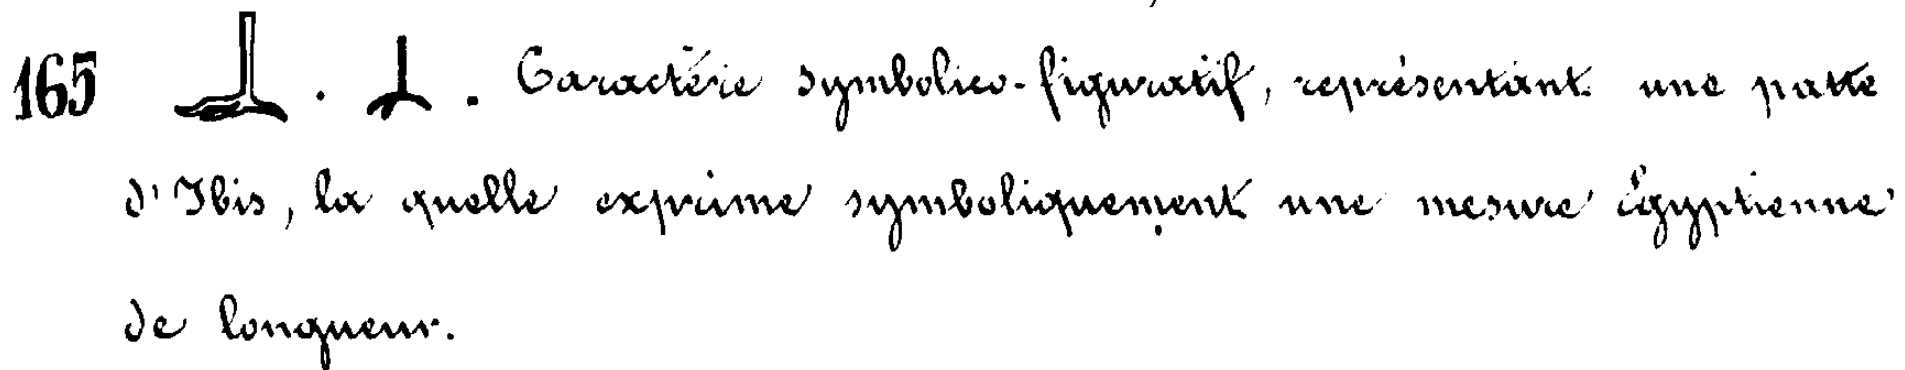 165 . . Caractère symbolico-figuratif, représentant une patte
d'Ibis, la quelle exprime symboliquement une mesure égyptienne
de longueur.